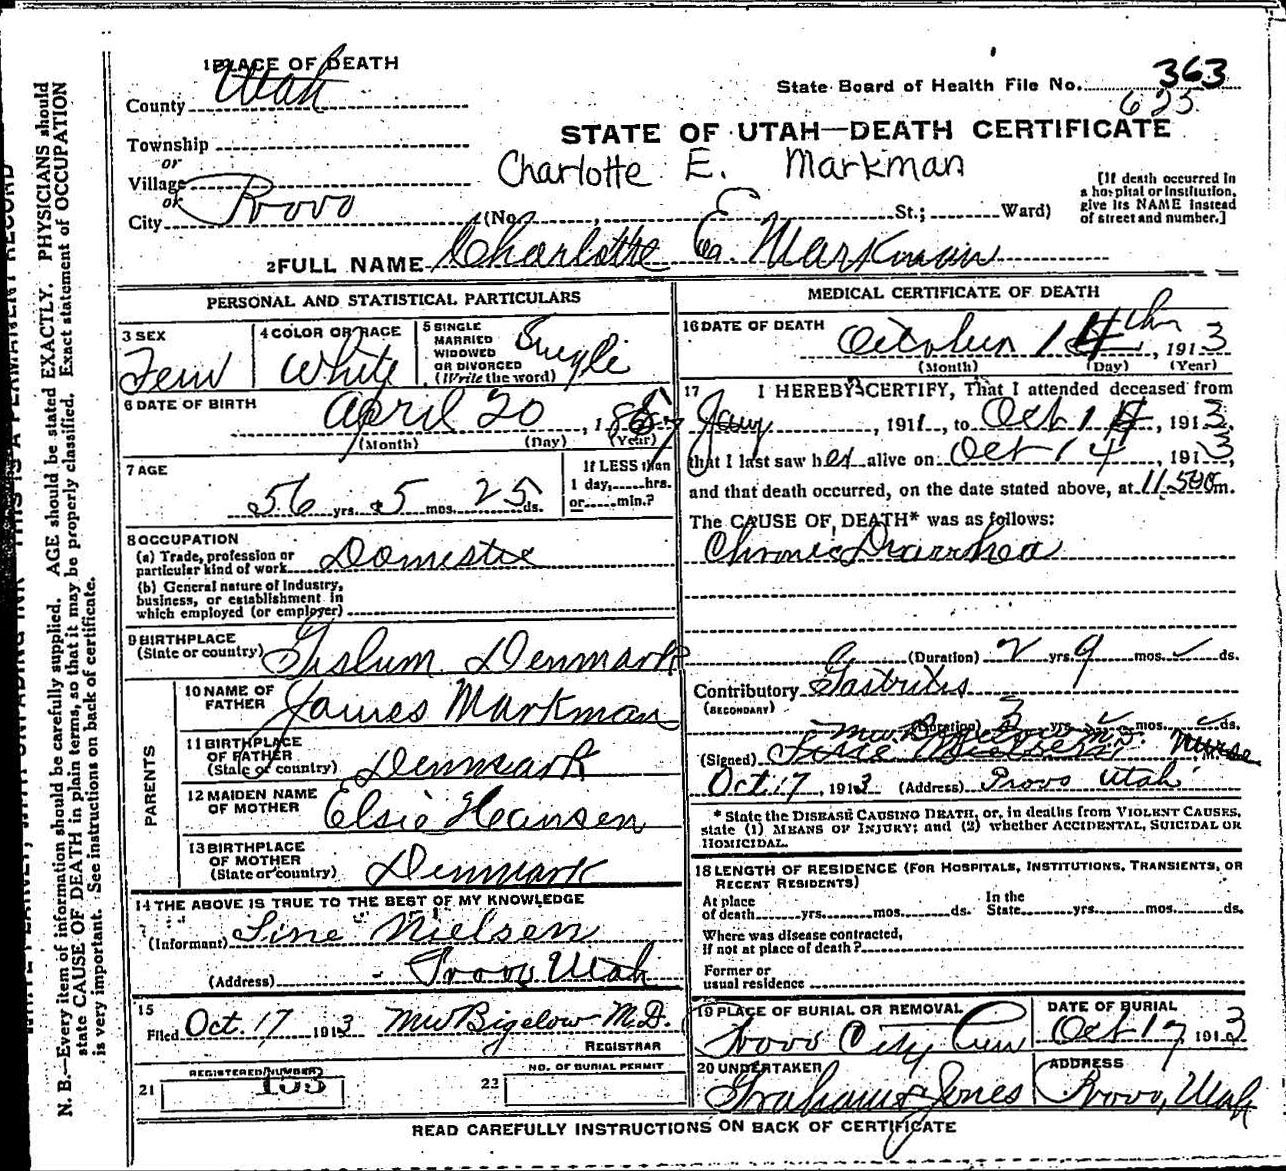 1 PLACE OF DEATH
County Utah
State Board of Health File No. 363
625
STATE OF UTAH—DEATH CERTIFICATE
Township
or
Village
or
City Provo
Charlotte E. Markman
(No. , St.; Ward)
[If death occurred in
a hospital or institution,
give its NAME instead
of street and number.]
2 FULL NAME Charlotte E. Markman
PERSONAL AND STATISTICAL PARTICULARS
3 SEX
Fem
4 COLOR OR RACE
White
5 SINGLE
MARRIED
WIDOWED
OR DIVORCED
(Write the word)
Single
6 DATE OF BIRTH
April 20, 1857
(Month) (Day) (Year)
7 AGE
56 yrs. 5 mos. 25 ds.
If LESS than
1 day,......hrs.
or......min.?
8 OCCUPATION
(a) Trade, profession or
particular kind of work Domestic
(b) General nature of Industry,
business, or establishment in
which employed (or employer)
9 BIRTHPLACE
(State or country) Gislum Denmark
PARENTS
10 NAME OF
FATHER James Markman
11 BIRTHPLACE
OF FATHER
(State or country) Denmark
12 MAIDEN NAME
OF MOTHER Elsie Hansen
13 BIRTHPLACE
OF MOTHER
(State or country) Denmark
14 THE ABOVE IS TRUE TO THE BEST OF MY KNOWLEDGE
(Informant) Sine Nielsen
(Address) Provo Utah
15
Filed Oct. 17 1913 MW Bigelow M.D.
REGISTRAR
21
REGISTERED NUMBER
153
22
NO. OF BURIAL PERMIT
MEDICAL CERTIFICATE OF DEATH
16 DATE OF DEATH
October 14th, 1913
(Month) (Day) (Year)
17 I HEREBY CERTIFY, That I attended deceased from
Jany, 1911, to Oct 14, 1913,
that I last saw her alive on Oct 14, 1913,
and that death occurred, on the date stated above, at 11.50 m.
The CAUSE OF DEATH* was as follows:
Chronic Diarrhea
(Duration) 2 yrs. 9 mos. ds.
Contributory Gastritis
(SECONDARY)
(Duration) yrs. mos. ds.
(Signed) Sine Nielsen Nurse
Oct. 17, 1913 (Address) Provo Utah
* State the DISEASE CAUSING DEATH, or, in deaths from VIOLENT CAUSES,
state (1) MEANS OF INJURY; and (2) whether ACCIDENTAL, SUICIDAL OR
HOMICIDAL.
18 LENGTH OF RESIDENCE (FOR HOSPITALS, INSTITUTIONS, TRANSIENTS, OR
RECENT RESIDENTS)
At place
of death......yrs......mos......ds.
In the
State......yrs......mos......ds.
Where was disease contracted,
If not at place of death?
Former or
usual residence
19 PLACE OF BURIAL OR REMOVAL
Provo City Cem
DATE OF BURIAL
Oct 17, 1913
20 UNDERTAKER
Graham & Jones
ADDRESS
Provo, Utah
READ CAREFULLY INSTRUCTIONS ON BACK OF CERTIFICATE
N. B.—Every item of information should be carefully supplied. AGE should be stated EXACTLY. PHYSICIANS should
state CAUSE OF DEATH in plain terms, so that it may be properly classified. Exact statement of OCCUPATION
is very important. See instructions on back of certificate.